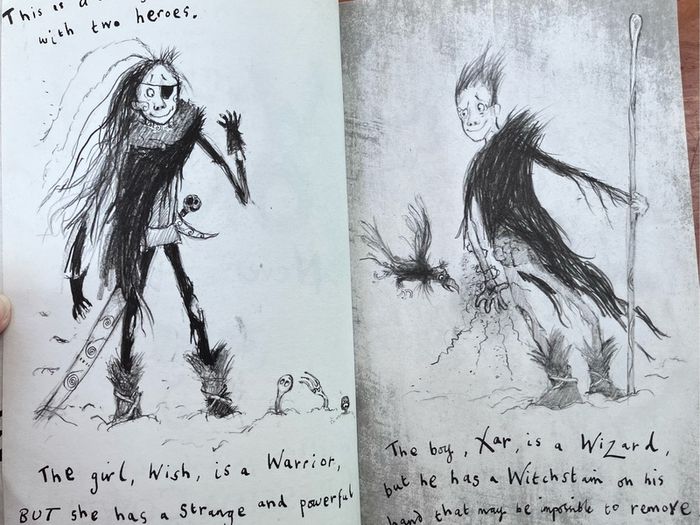 This is a
with two heroes.
The girl, Wish, is a Warrior,
BUT she has a Strange and powerful
The boy, Xar, is a WiZard,
but he has a Witchstain on his
hand that may be impossible to remove